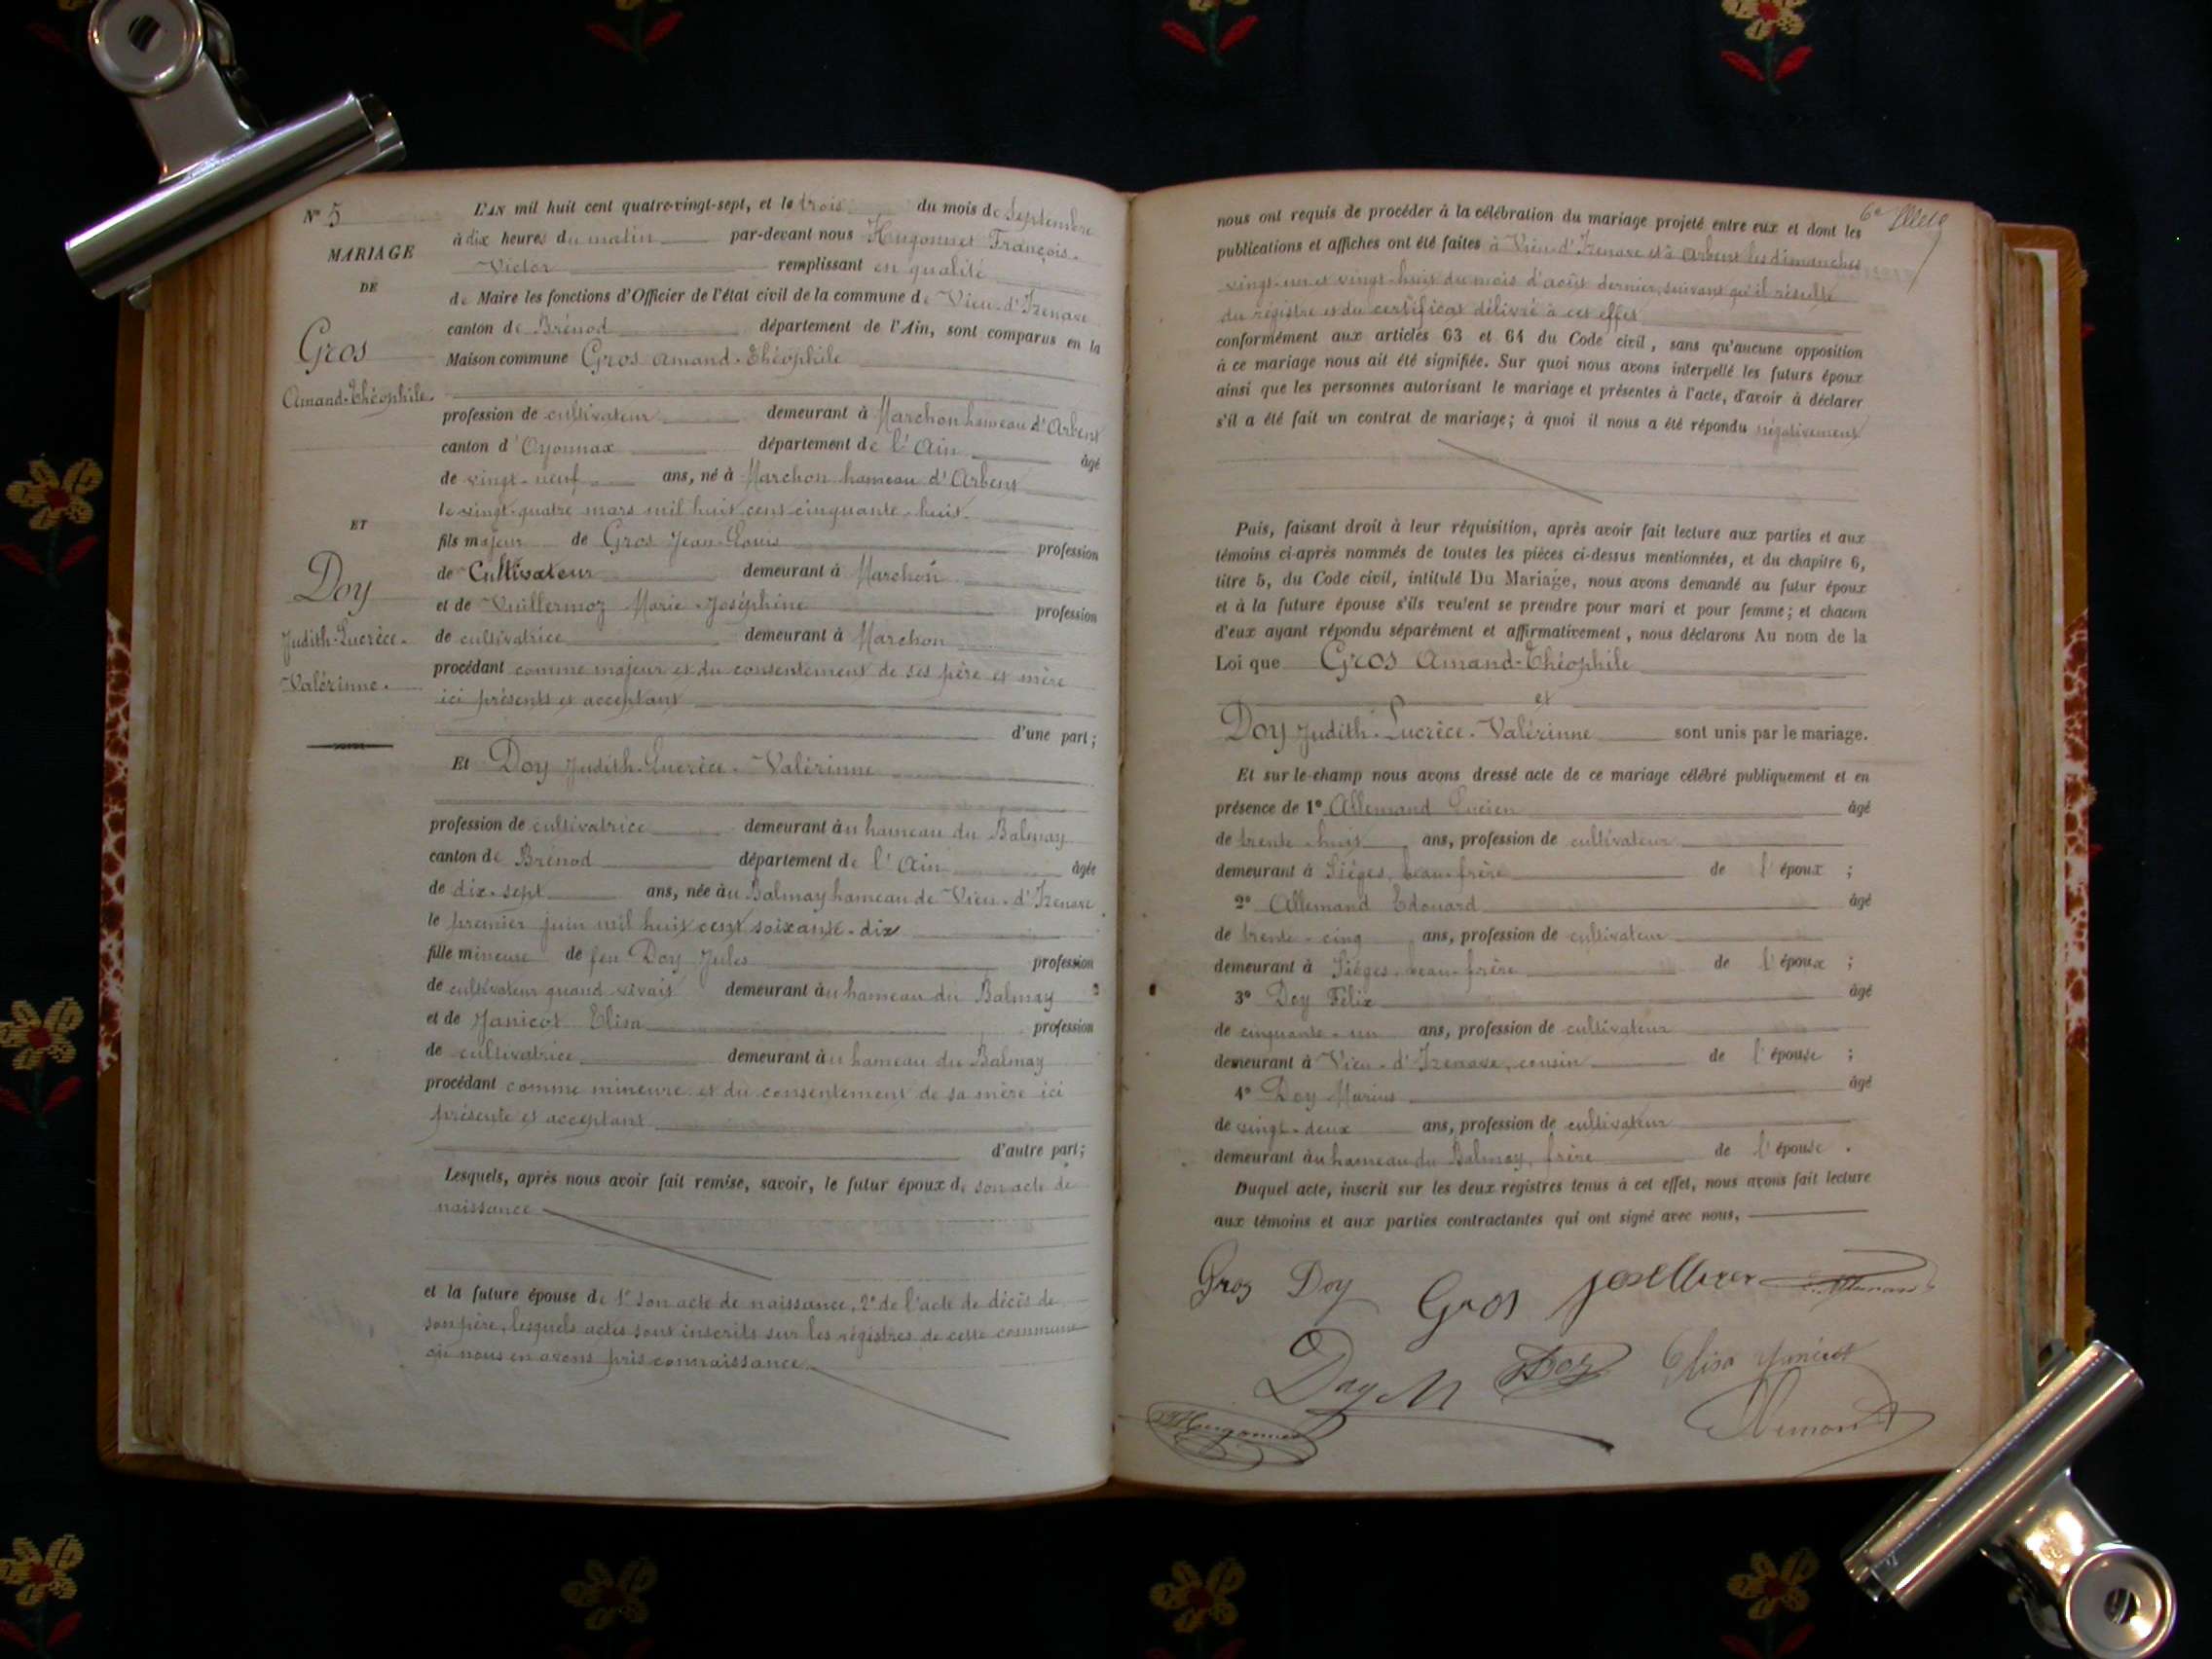 N° 5
MARIAGE
DE
Gros
Amand-Théophile.
ET
Doy
Judith-Lucrèce-
Valérinne.
L'AN mil huit cent quatre-vingt-sept, et le trois du mois de Septembre
à dix heures du matin par-devant nous Hugonnet François-
Victor remplissant en qualité
de Maire les fonctions d'Officier de l'état civil de la commune de Vieu-d'Izenave
canton de Brénod département de l'Ain, sont comparus en la
Maison commune Gros Amand-Théophile
profession de cultivateur demeurant à Marchon hameau d'Arbent
canton d'Oyonnax département de l'Ain âgé
de vingt-neuf ans, né à Marchon hameau d'Arbent
le vingt-quatre mars mil huit cent cinquante-huit.
fils majeur de Gros Jean-Louis profession
de Cultivateur demeurant à Marchon
et de Vuillermoz Marie-Joséphine profession
de cultivatrice demeurant à Marchon
procédant comme majeur et du consentement de ses père et mère
ici présents et acceptant
d'une part;
Et Doy Judith-Lucrèce-Valérinne
profession de cultivatrice demeurant àu hameau du Balmay
canton de Brénod département de l'Ain âgée
de dix-sept ans, née àu Balmay hameau de Vieu-d'Izenave
le premier juin mil huit cent soixante-dix
fille mineure de feu Doy Jules profession
de cultivateur quand vivait demeurant àu hameau du Balmay
et de Janicot Elisa profession
de cultivatrice demeurant àu hameau du Balmay
procédant comme mineure et du consentement de sa mère ici
présente et acceptant
d'autre part;
Lesquels, après nous avoir fait remise, savoir, le futur époux de son acte de
naissance
et la future épouse de 1° son acte de naissance, 2° de l'acte de décès de
son père, lesquels actes sont inscrits sur les régistres de cette commune
où nous en avons pris connaissance
6e
nous ont requis de procéder à la célébration du mariage projeté entre eux et dont les
publications et affiches ont été faites à Vieu-d'Izenave et à Arbent les dimanches
vingt-un et vingt-huit du mois d'août dernier, suivant qu'il résulte
du régistre et du certificat délivré à cet effet
conformément aux articles 63 et 64 du Code civil, sans qu'aucune opposition
à ce mariage nous ait été signifiée. Sur quoi nous avons interpellé les futurs époux
ainsi que les personnes autorisant le mariage et présentes à l'acte, d'avoir à déclarer
s'il a été fait un contrat de mariage; à quoi il nous a été répondu négativement
Puis, faisant droit à leur réquisition, après avoir fait lecture aux parties et aux
témoins ci-après nommés de toutes les pièces ci-dessus mentionnées, et du chapitre 6,
titre 5, du Code civil, intitulé Du Mariage, nous avons demandé au futur époux
et à la future épouse s'ils veulent se prendre pour mari et pour femme; et chacun
d'eux ayant répondu séparément et affirmativement, nous déclarons Au nom de la
Loi que Gros Amand-Théophile
et
Doy Judith-Lucrèce-Valérinne sont unis par le mariage.
Et sur-le-champ nous avons dressé acte de ce mariage célébré publiquement et en
présence de 1° Allemand Lucien âgé
de trente-huit ans, profession de cultivateur
demeurant à Siéges, beau-frère de l'époux;
2° Allemand Edouard âgé
de trente-cinq ans, profession de cultivateur
demeurant à Siéges, beau-frère de l'époux;
3° Doy Félix âgé
de cinquante-un ans, profession de cultivateur
demeurant à Vieu-d'Izenave, cousin de l'épouse;
4° Doy Marius âgé
de vingt-deux ans, profession de cultivateur
demeurant àu hameau du Balmay, frère de l'épouse.
Duquel acte, inscrit sur les deux registres tenus à cet effet, nous avons fait lecture
aux témoins et aux parties contractantes qui ont signé avec nous.
Gros Doy Gros
Doy M Doy Elisa Janicot
Hugonnet